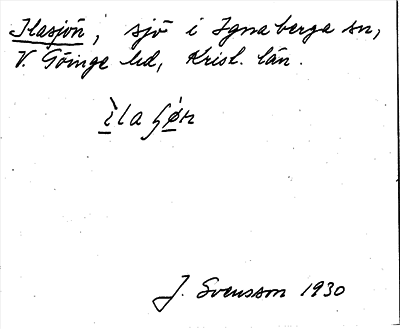 Ilasjön, sjö i Ignaberga sn,
V. Göinge hd, Krist. län.
ìla ʃø̀n
J. Svensson 1930